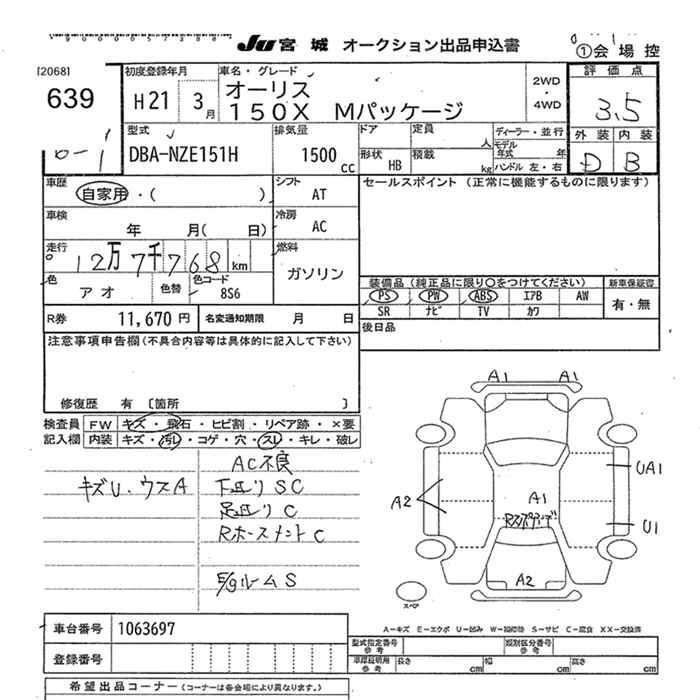 JU 宮城 オークション出品申込書 ①会場控
[2068]
639
初度登録年月
H21 3月
車名・グレード
オーリス
150X Mパッケージ
2WD
・
4WD
評価点
3.5
外装 内装
D B
型式
DBA-NZE151H
排気量
1500 cc
ドア 定員 人
形状 HB 積載 kg
ディーラー・並行
モデル年式 年
ハンドル 左・右
車歴
自家用・( )
シフト
AT
セールスポイント (正常に機能するものに限ります)
車検
年 月( 日)
冷房
AC
走行
12万7千768 km
燃料
ガソリン
色
アオ
色替
色コード
8S6
装備品 (純正品に限り○をつけてください) 新車保証書
PS PW ABS エアB AW 有・無
SR ナビ TV カワ
R券 11,670円 名変通知期限 月 日
後日品
注意事項申告欄(不具合内容等は具体的に記入して下さい)
修復歴 有 〔箇所 〕
検査員 FW キズ・飛石・ヒビ割・リペア跡・×要
記入欄 内装 キズ・汚レ・コゲ・穴・スレ・キレ・破レ
AC不良
キズU.ウスA
下廻りSC
足廻りC
RホースメントC
E/gルームS
A1 A1
A2
UA1
A1
U1
A2
スペア
車台番号 1063697
登録番号
A-キズ E-エクボ U-凹み W-補修跡 S-サビ C-腐食 XX-交換済
型式指定番号 参考 類別区分番号 参考
車庫証明用 参考 長さ cm 幅 cm 高さ cm
希望出品コーナー(コーナーは各会場により異なります。)